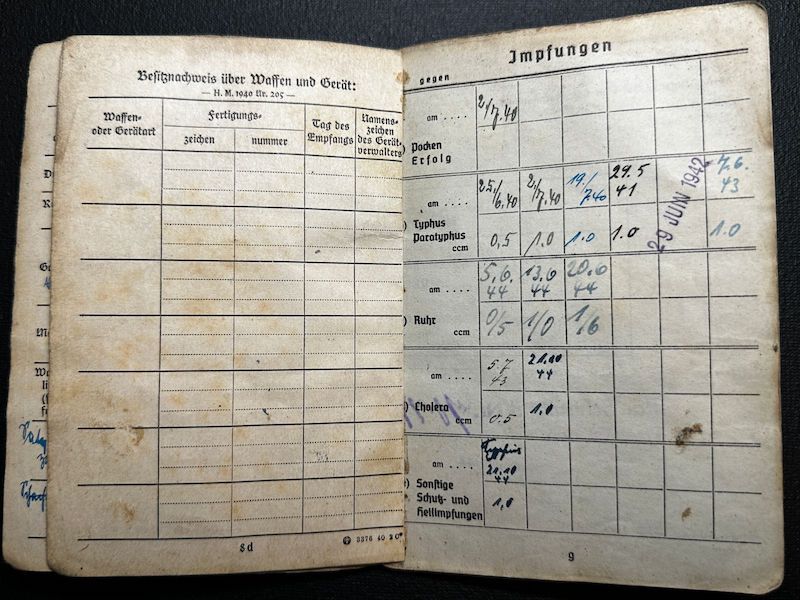 Besitznachweis über Waffen und Gerät:
— H. M. 1940 Nr. 205 —
Waffen-
oder Gerätart
Fertigungs-
zeichen
nummer
Tag des
Empfangs
Namens-
zeichen
des Gerät-
verwalters
8d
3376 40 2 C
Impfungen
gegen
am ....
2./7.40
Pocken
Erfolg
am ....
25./6.40
2./7.40
19./7.40
29.5
41
29 JUNI 1942
7.6.
43
Typhus
Paratyphus
ccm
0,5
1.0
1.0
1.0
1.0
am ....
5.6.
44
13.6
44
20.6
44
Ruhr
ccm
0/5
1/0
am ....
5.7
43
21.10
44
Cholera
ccm
0.5
1.0
am ....
21.10
44
Sonstige
Schutz- und
Heilimpfungen
1,0
9